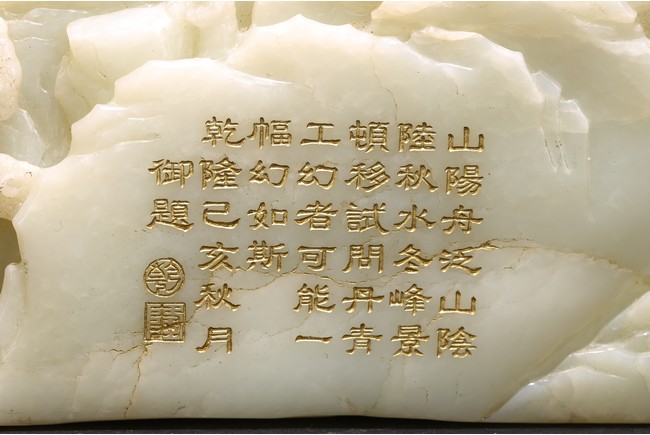 山陽舟泛山陰
陸秋水冬峰景
頓移試問丹青
工幻者可能一
幅幻如斯
乾隆己亥秋月
御題